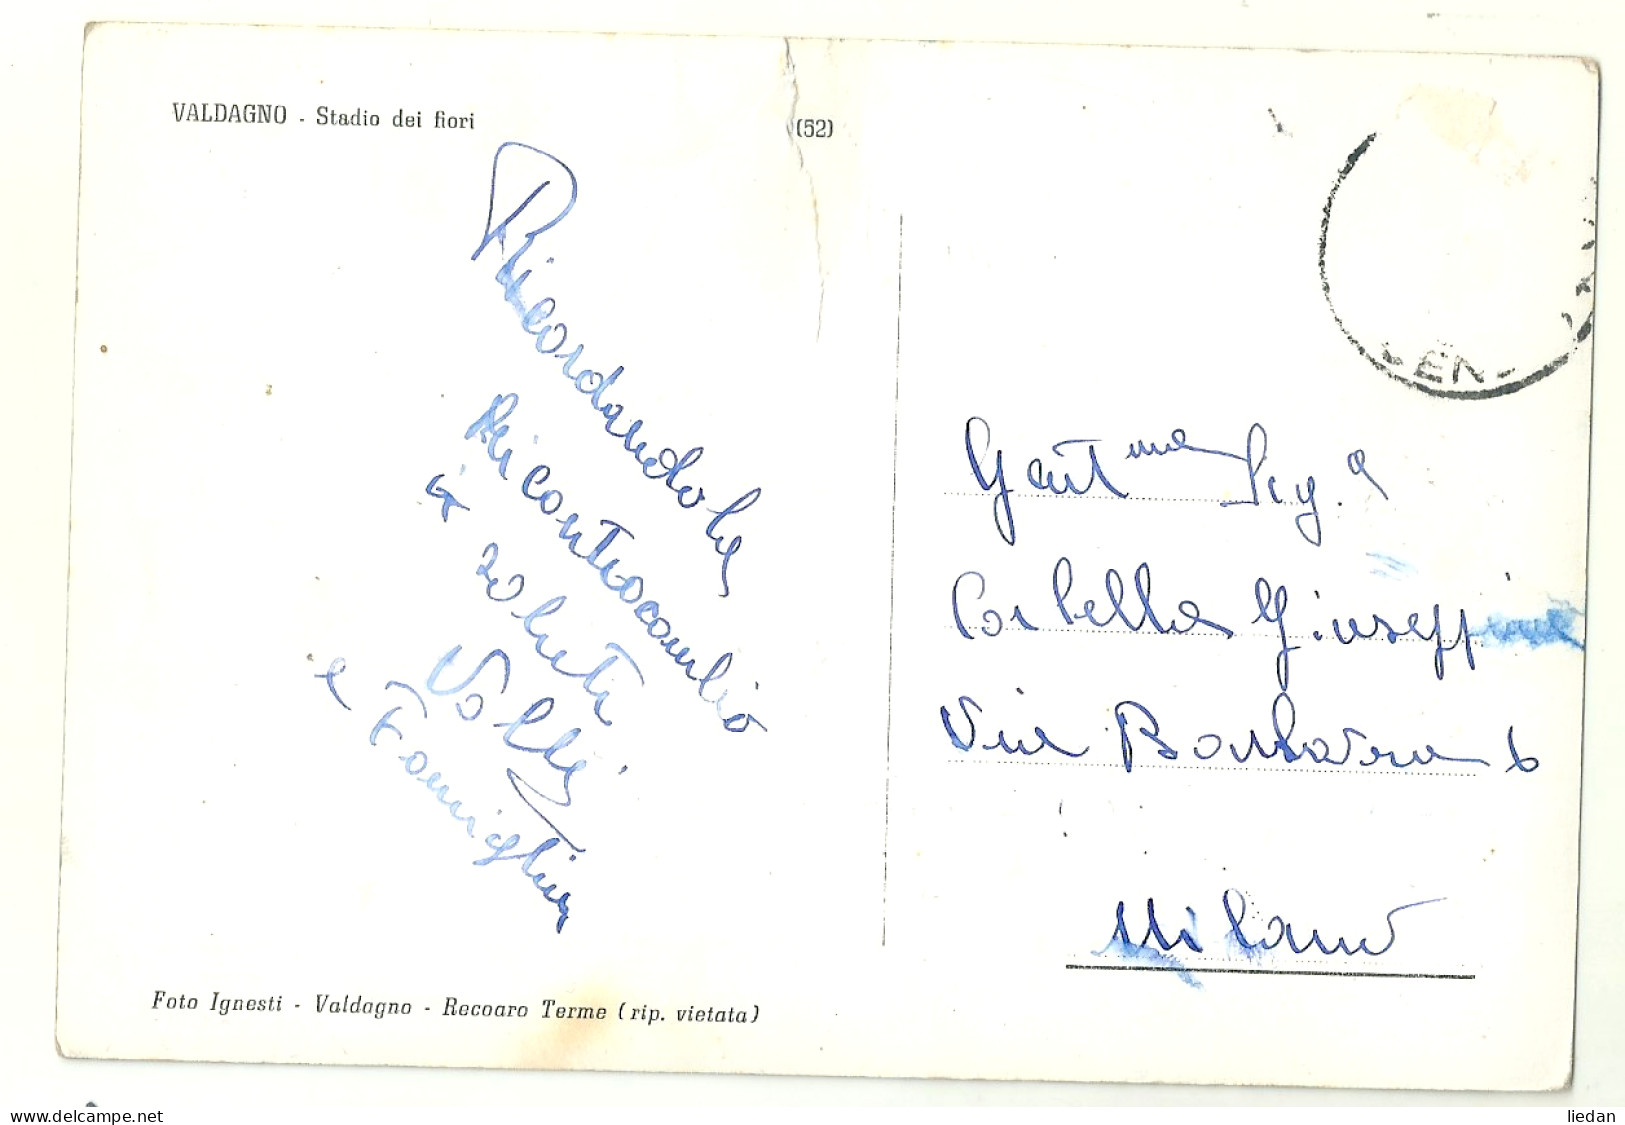 VALDAGNO - Stadio dei fiori
(52)
Ricordandola
Ricontracambio
i saluti
Valli
e Famiglia
Gent.ma Sig.a
Corbella Giuseppina
Via Barbavara 6
Milano
Foto Ignesti - Valdagno - Recoaro Terme (rip. vietata)
www.delcampe.net
liedan